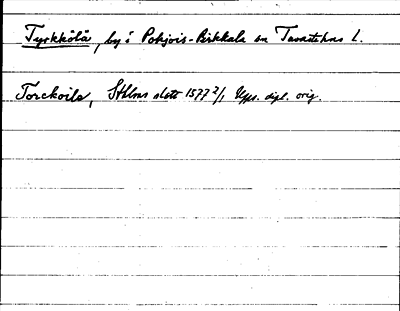 Tyrkkölä, by i Pohjois-Pirkkala sn Tavastehus l.
Torckoila, Sthlms slott 1577 2/1 Upps. dipl. orig.